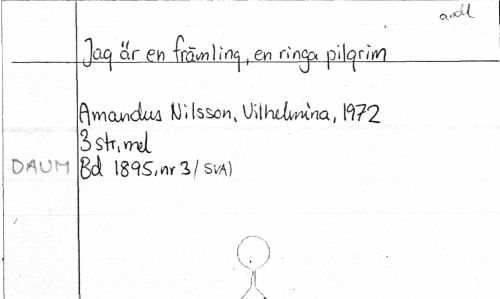 andl
Jag är en främling, en ringa pilgrim
Amandus Nilsson, Vilhelmina, 1972
3 str, mel
DAUM Bd 1895, nr 3 / SVA)